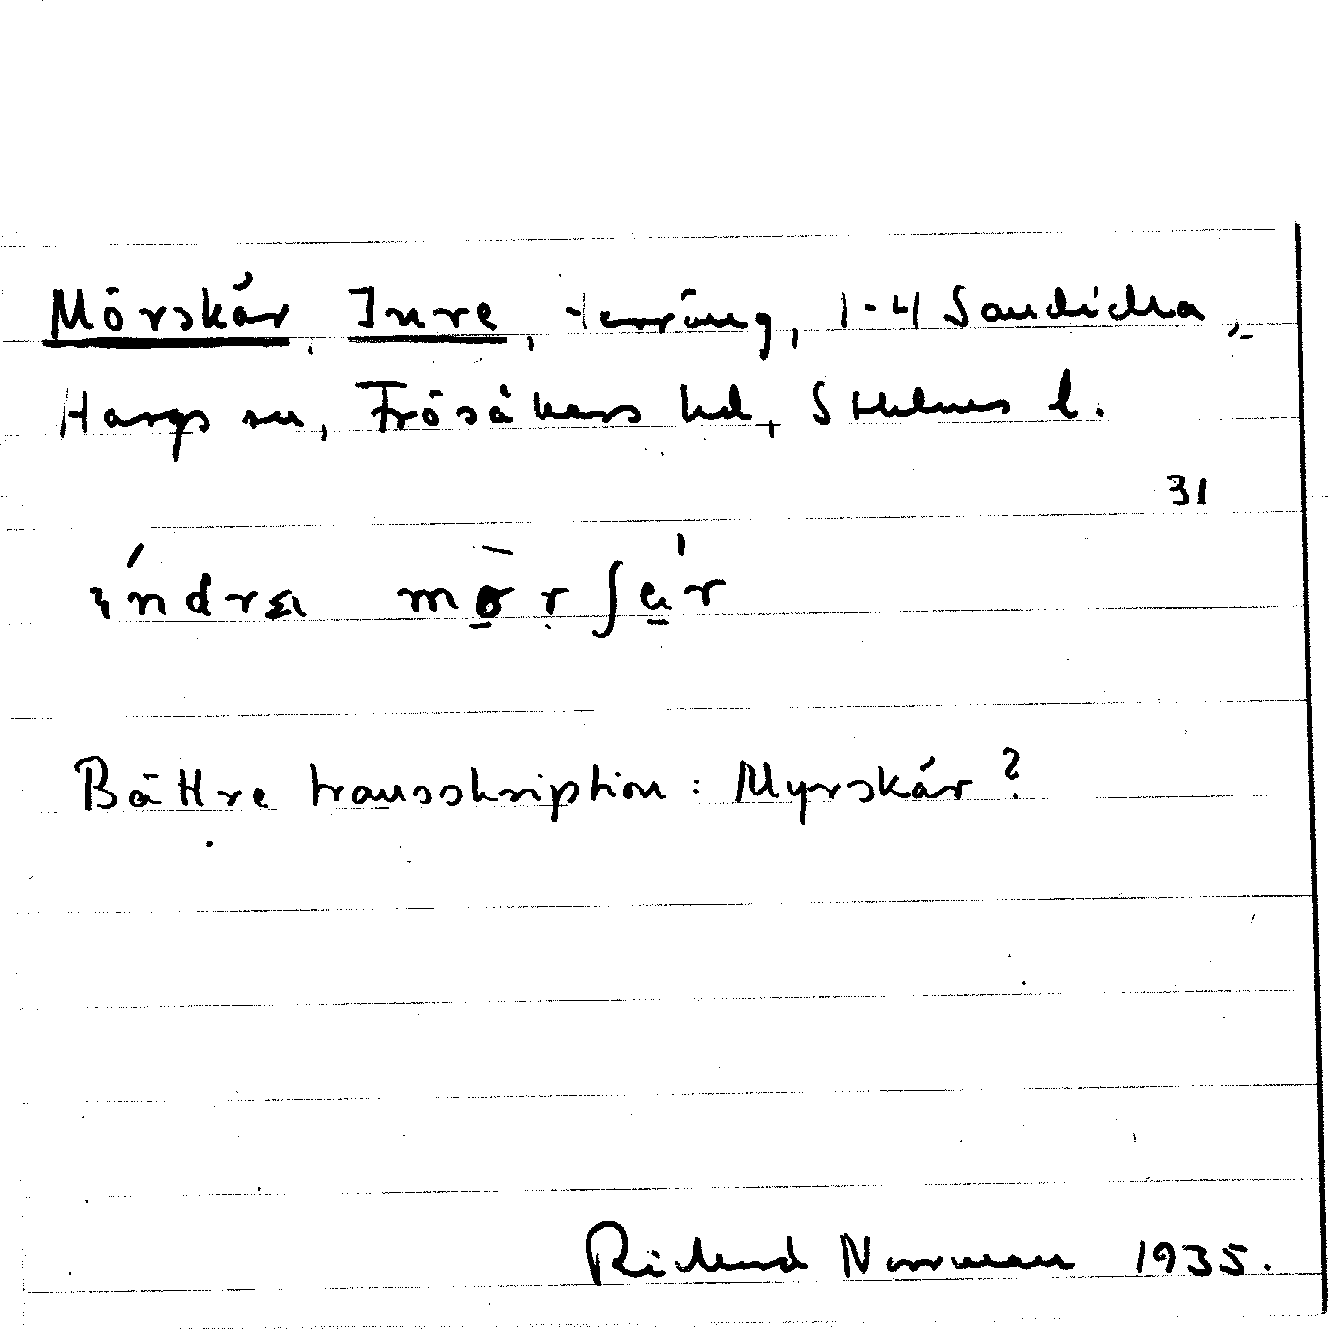 Mörskär, Inre, Herräng, 1-4 Sandicka,
Hargs sn, Frösåkers hd, Sthlms l.
31
índra mörʃär
Bättre transskription: Myrskär?
Rickard Norrman 1935.